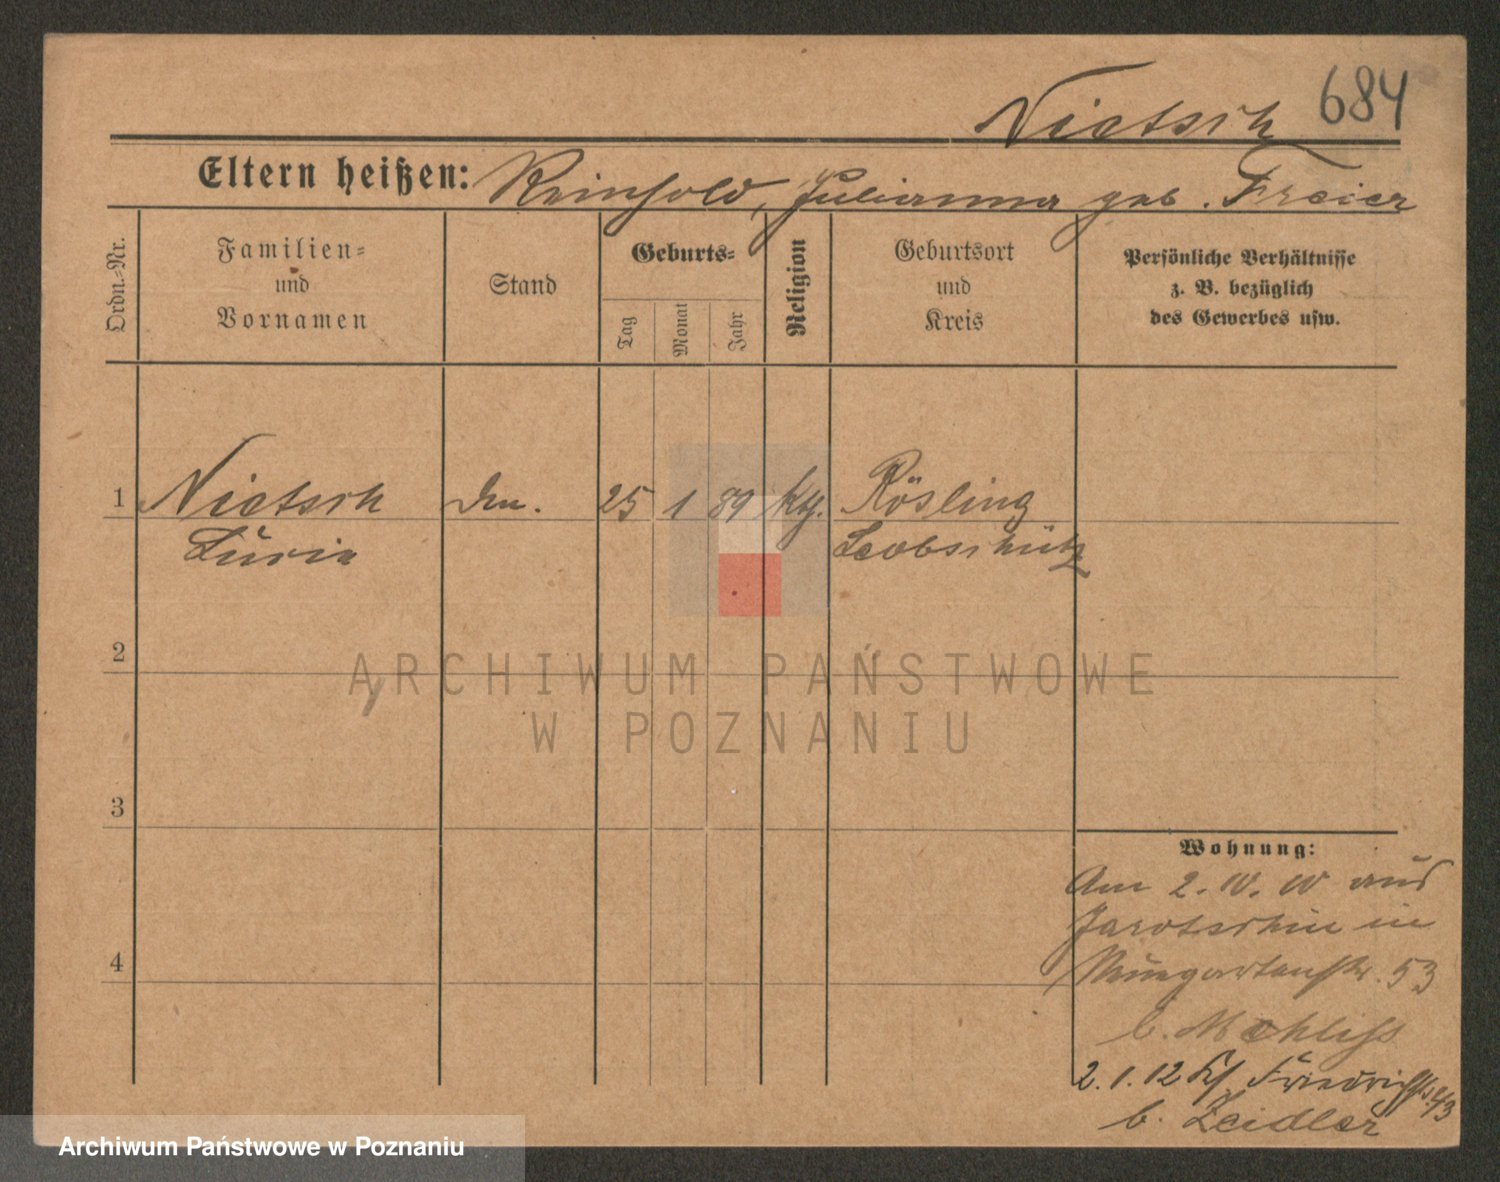 684
Nietsch
Eltern heißen: Reinhold, Julianna geb. Freier
Ordn.-Nr.
Familien-
und
Vornamen
Stand
Geburts-
Tag
Monat
Jahr
Religion
Geburtsort
und
Kreis
Persönliche Verhältnisse
z. B. bezüglich
des Gewerbes usw.
1 Nietsch 25 1 89 kth. Rösling
Leobschütz
2
3
4
Wohnung:
Am 2. IV. 10 aus
Jarotschin in
53
b.
2. 1. 12 43
b. Zeidler
ARCHIWUM PAŃSTWOWE
W POZNANIU
Archiwum Państwowe w Poznaniu